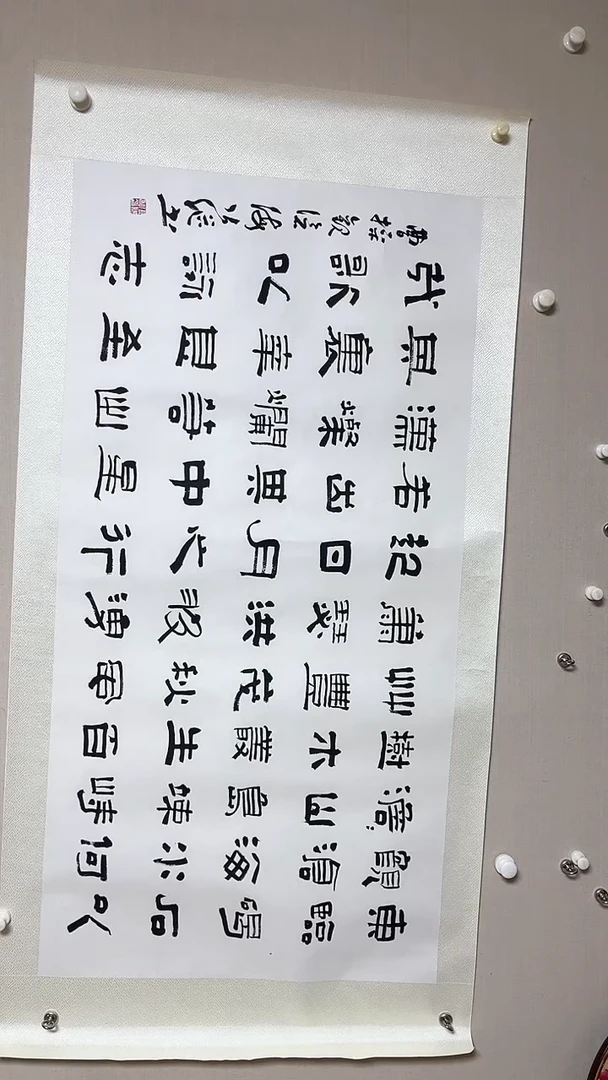 東臨碣石以
觀滄海水何
澹〻山島竦峙
樹木叢生百
艸豐茂秋風
蕭瑟洪波湧
起日月之行
若出其中星
漢粲爛若出
其裏幸甚至
哉歌以詠志
曹操觀滄海